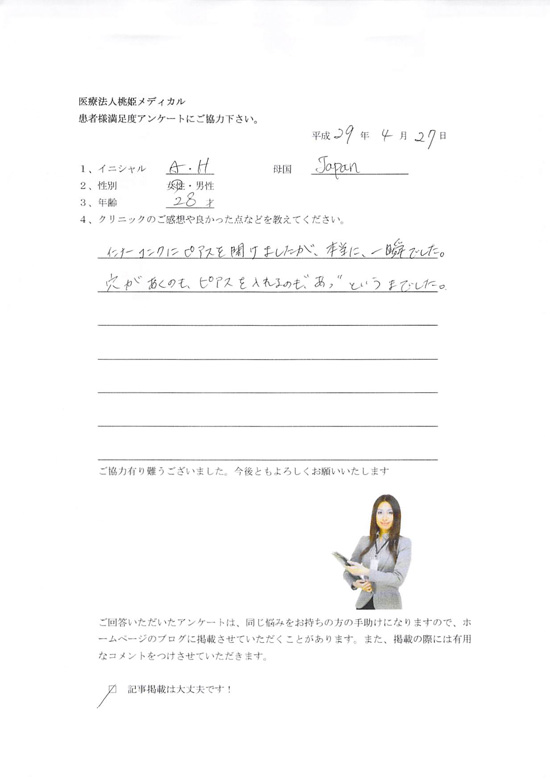 医療法人桃姫メディカル
患者様満足度アンケートにご協力下さい。
平成 29 年 4 月 27 日
1、イニシャル A・H 母国 Japan
2、性別 女性・男性
3、年齢 28 才
4、クリニックのご感想や良かった点などを教えてください。
インナーコンクにピアスを開けましたが、本当に、一瞬でした。
穴があくのも、ピアスを入れるのも、"あっ"というまでした。
ご協力有り難うございました。今後ともよろしくお願いいたします
ご回答いただいたアンケートは、同じ悩みをお持ちの方の手助けになりますので、ホ
ームページのブログに掲載させていただくことがあります。また、掲載の際には有用
なコメントをつけさせていただきます。
☑ 記事掲載は大丈夫です！